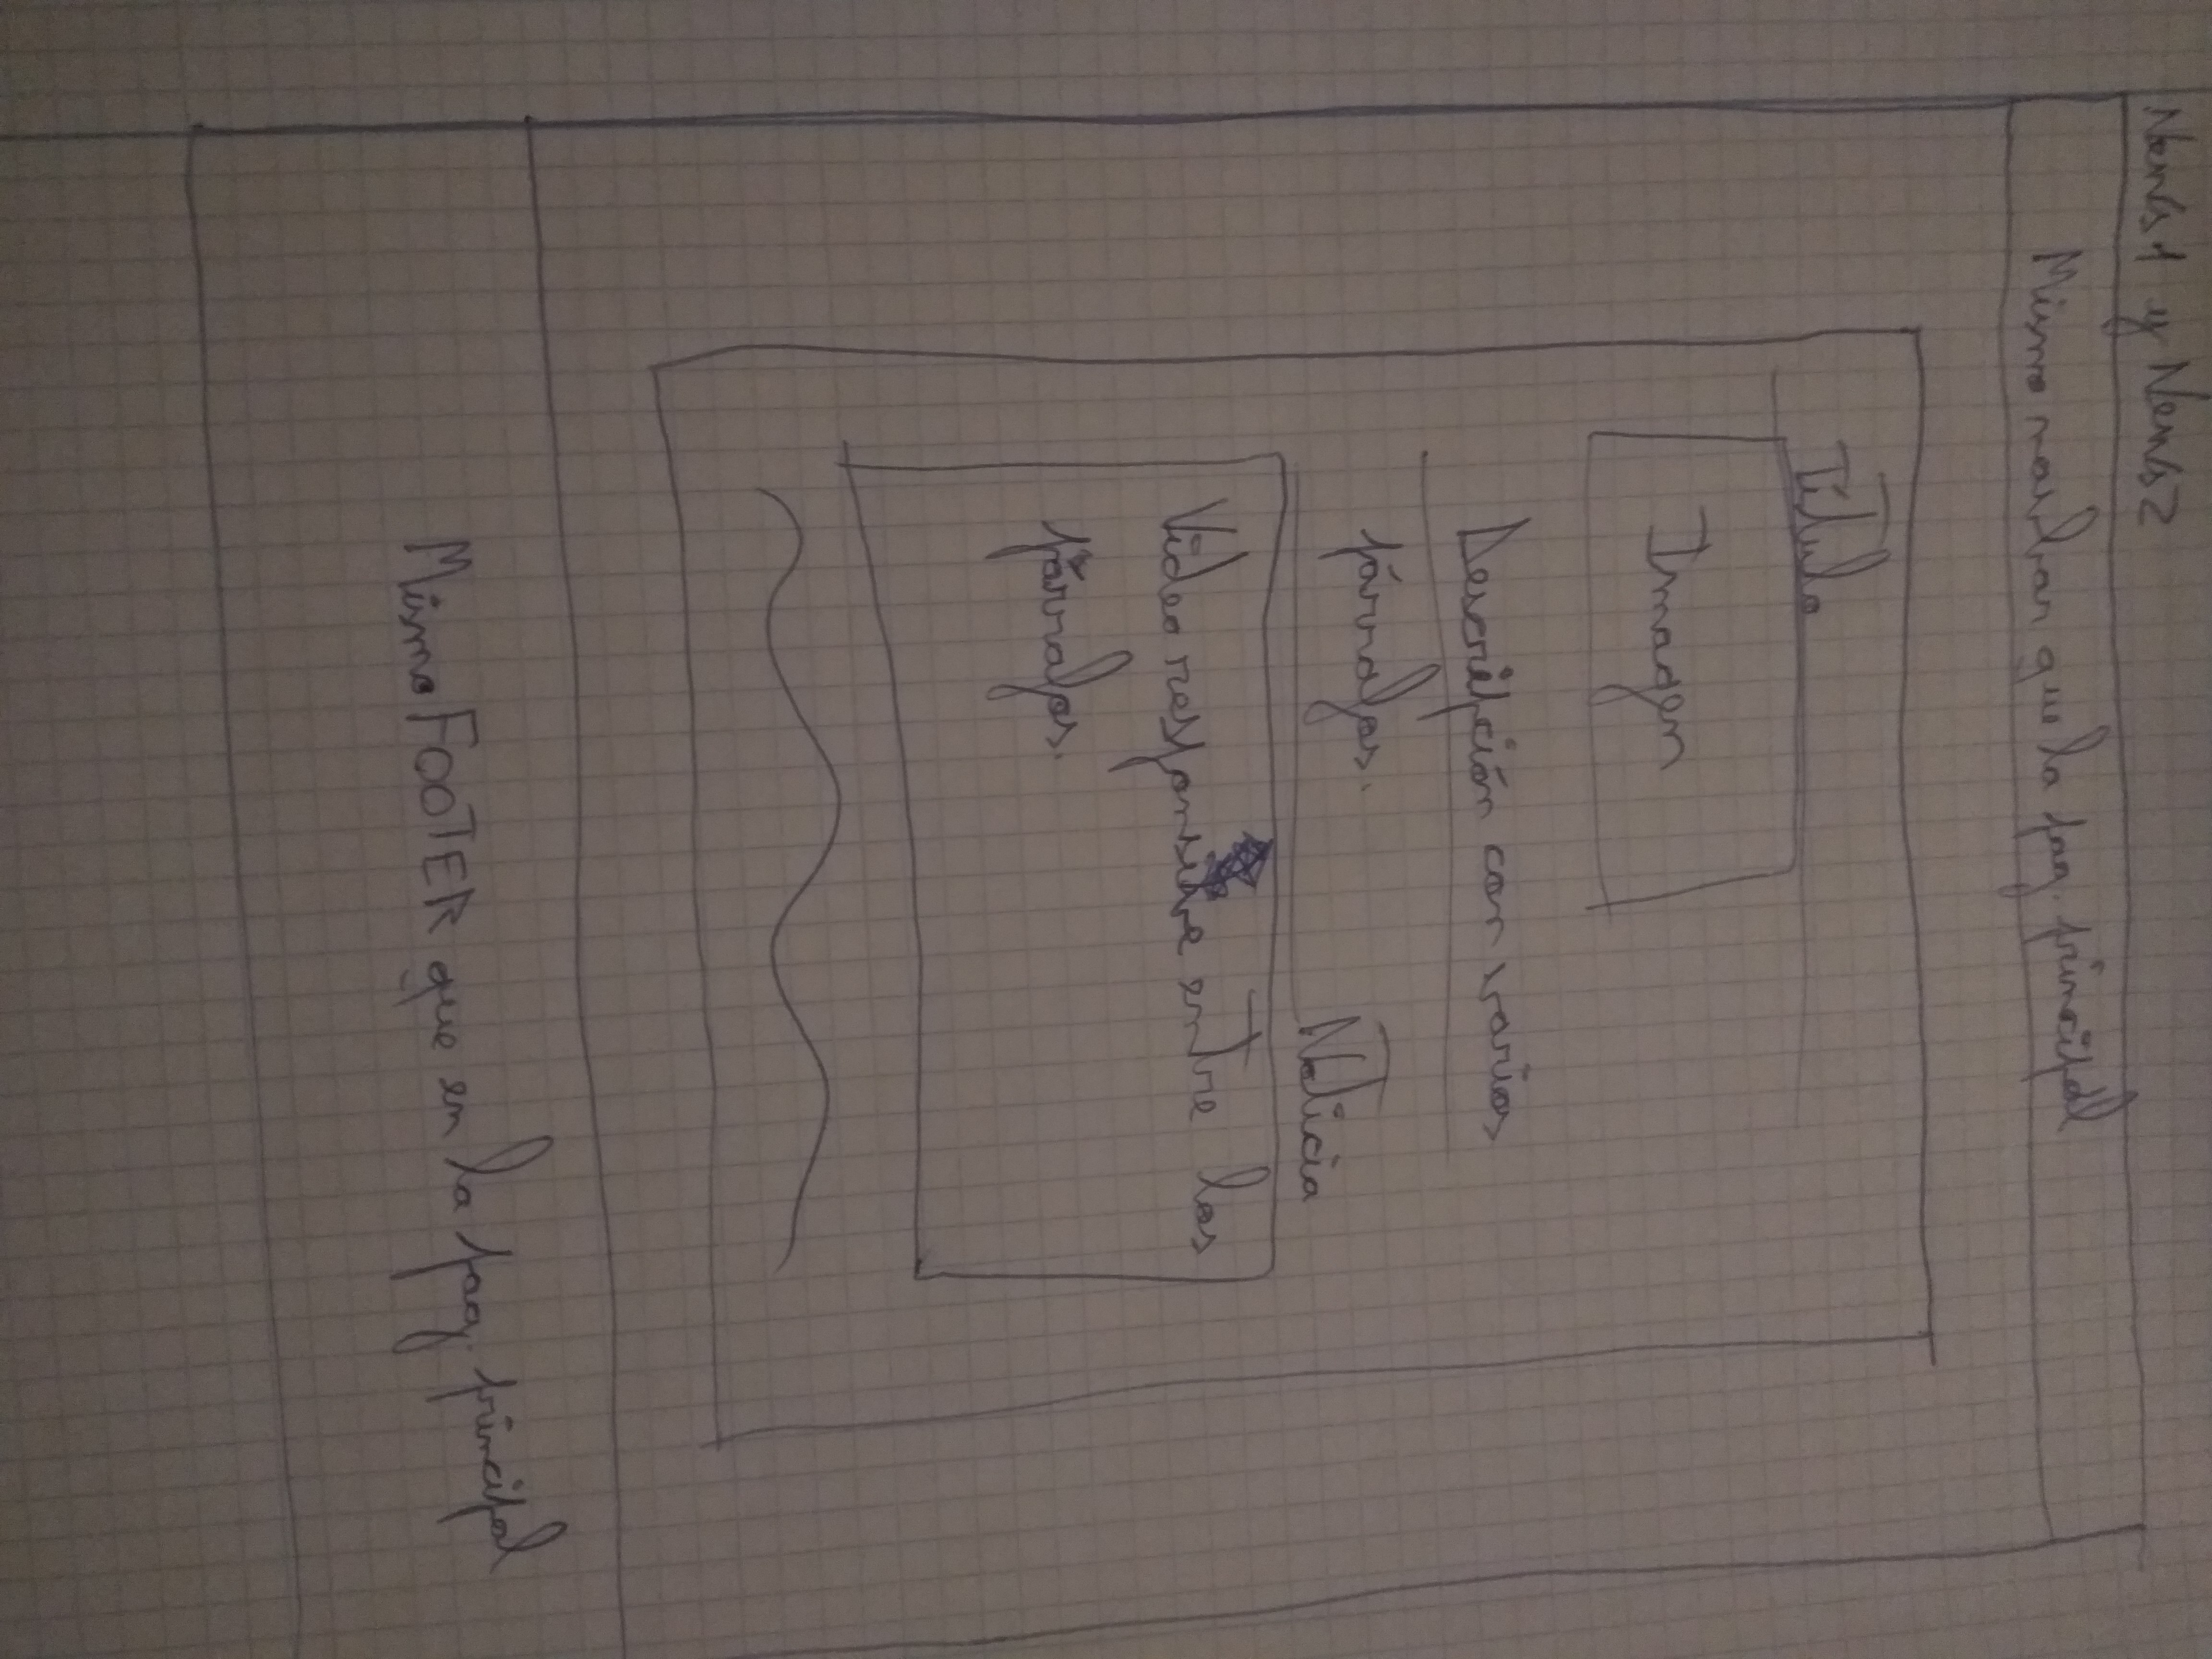 News 1 y News 2
Mismo navbar que la pag. principal
Título
Imagen
Descripción con varios
párrafos.
Noticia
Video responsive entre los
párrafos.
Mismo FOOTER que en la pag. principal